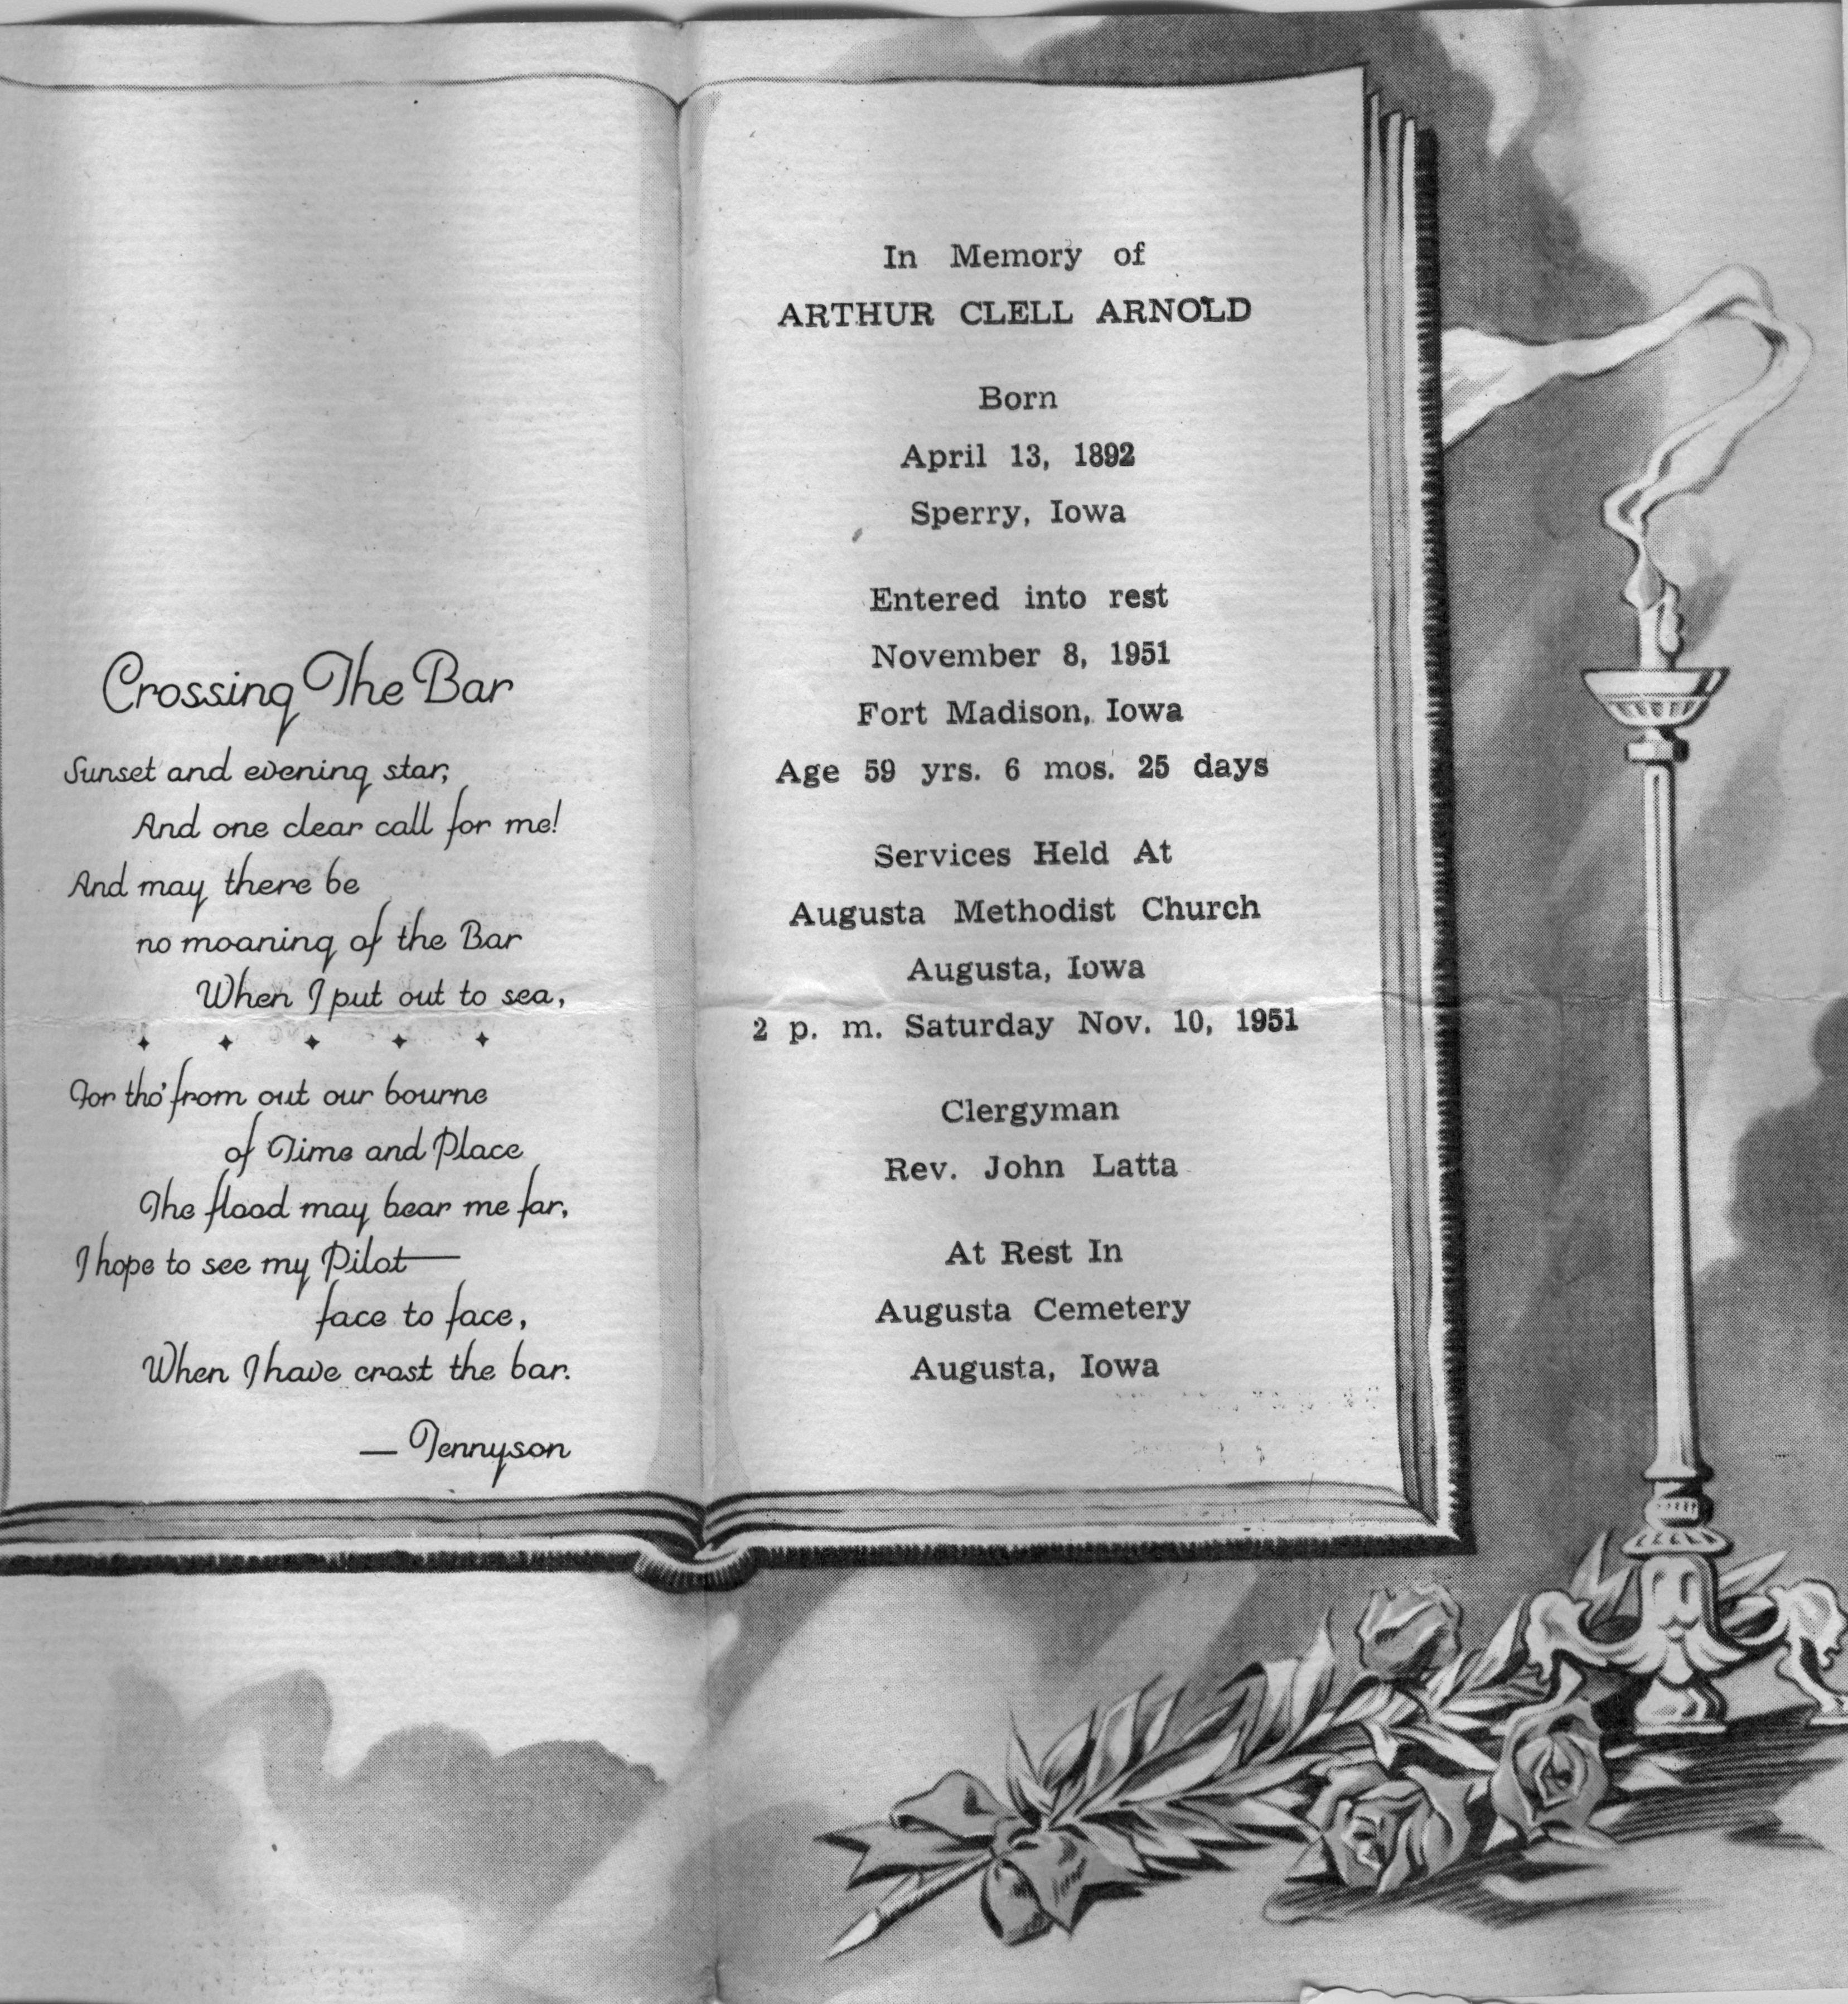 Crossing The Bar
Sunset and evening star,
And one clear call for me!
And may there be
no moaning of the Bar
When I put out to sea,
For tho' from out our bourne
of Time and Place
The flood may bear me far,
I hope to see my Pilot—
face to face,
When I have crost the bar.
— Tennyson
In Memory of
ARTHUR CLELL ARNOLD
Born
April 13, 1892
Sperry, Iowa
Entered into rest
November 8, 1951
Fort Madison, Iowa
Age 59 yrs. 6 mos. 25 days
Services Held At
Augusta Methodist Church
Augusta, Iowa
2 p. m. Saturday Nov. 10, 1951
Clergyman
Rev. John Latta
At Rest In
Augusta Cemetery
Augusta, Iowa